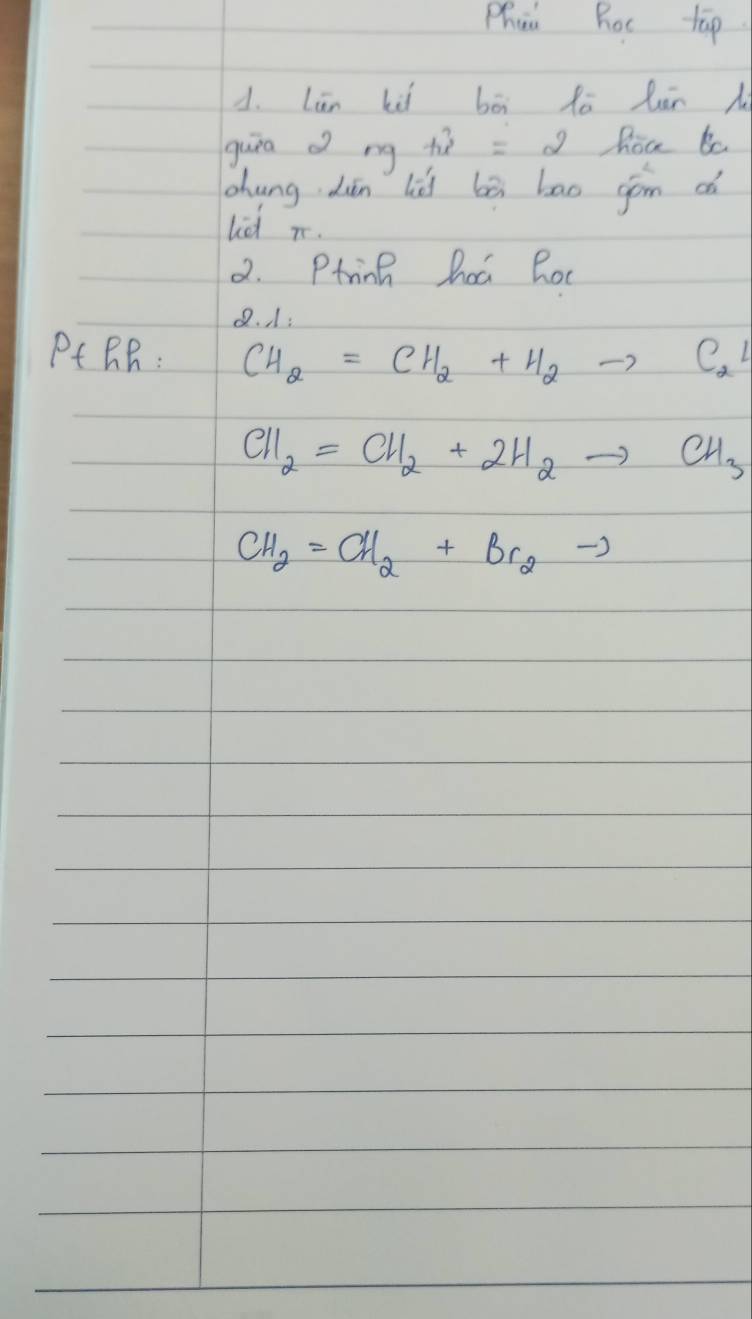 Phiếu học tập
1. Liên kết bội là liên
giữa 2 ng tử = 2 hoặc
chung. Liên kết bội bao gồm có
kết π.
2. Ptrình hoá học
2.1:
Pthh: CH₂ = CH₂ + H₂ → C₂
CH₂ = CH₂ + 2H₂ → CH₃
CH₂ = CH₂ + Br₂ →